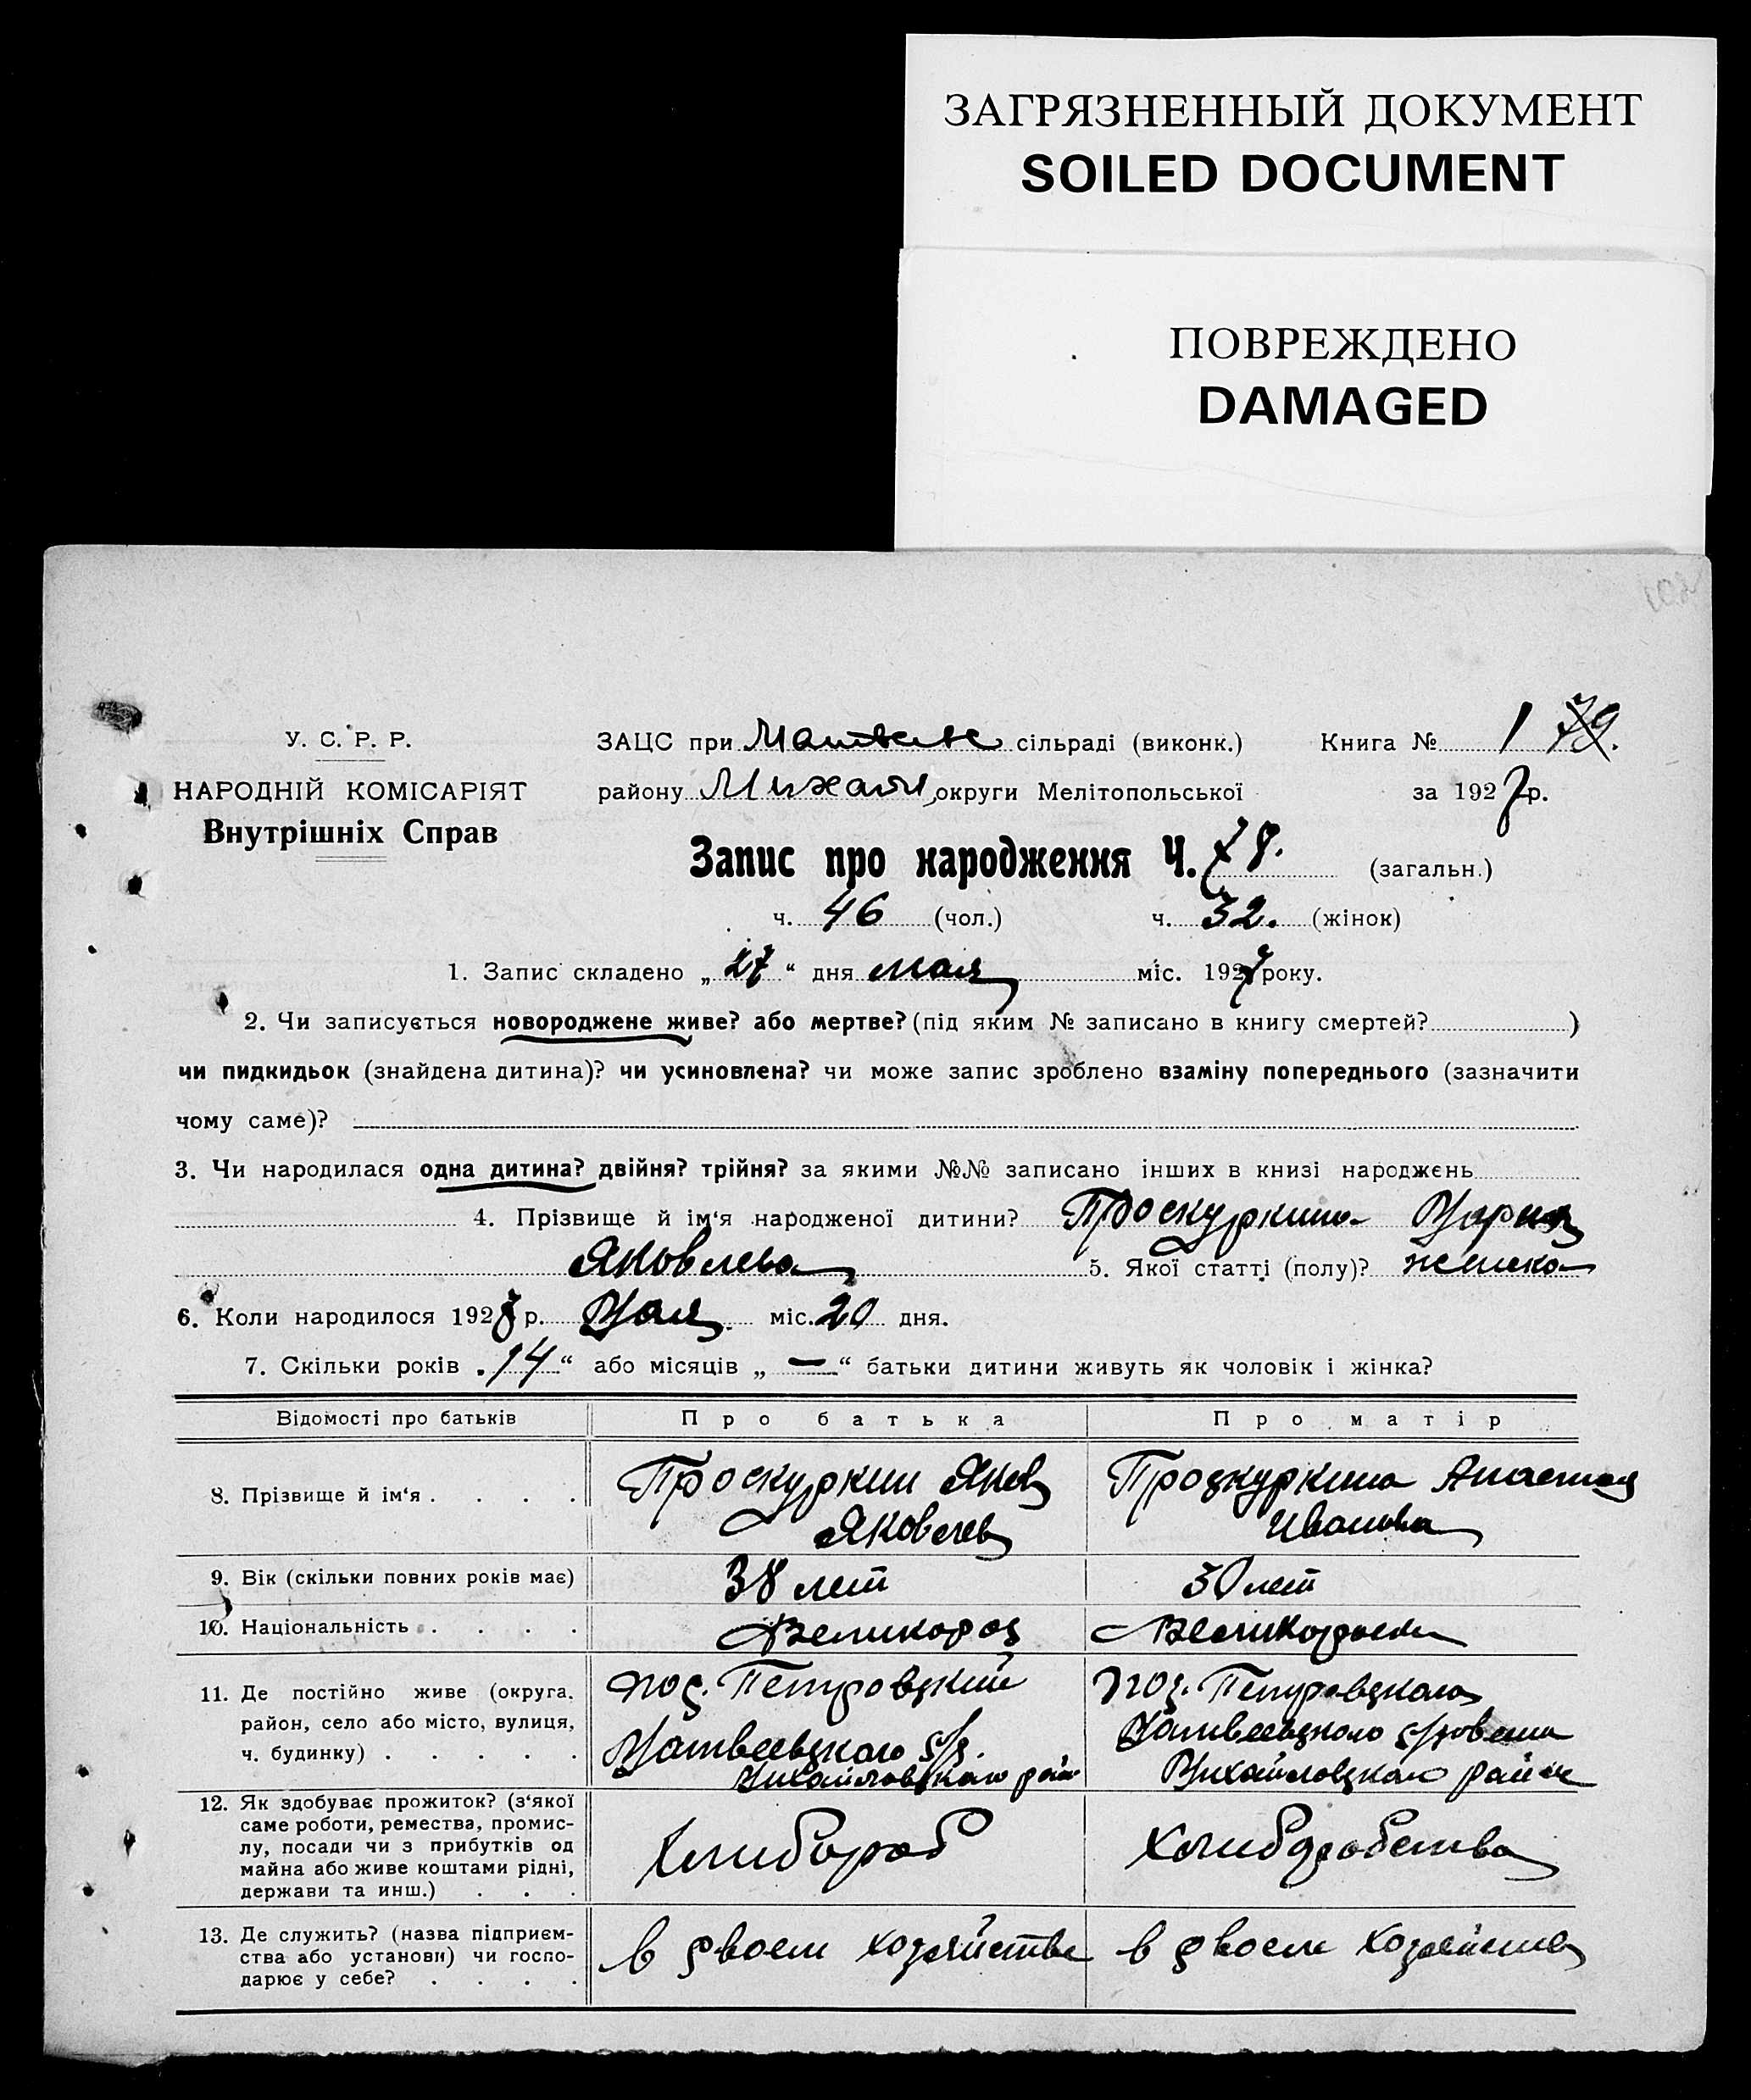 ЗАГРЯЗНЕННЫЙ ДОКУМЕНТ
SOILED DOCUMENT
ПОВРЕЖДЕНО
DAMAGED
У. С. Р. Р.
НАРОДНІЙ КОМІСАРІЯТ
Внутрішніх Справ
ЗАЦС при Матвеевс сільраді (виконк.) Книга № 1 79.
району Михайл округи Мелітопольської за 1927 р.
Запис про народження Ч. 78. (загальн.)
ч. 46 (чол.) ч. 32. (жінок)
1. Запис складено „27“ дня мая міс. 1927 року.
2. Чи записується новороджене живе? або мертве? (під яким № записано в книгу смертей? )
чи пидкидьок (знайдена дитина)? чи усиновлена? чи може запис зроблено взаміну попереднього (зазначити
чому саме)?
3. Чи народилася одна дитина? двійня? трійня? за якими №№ записано інших в книзі народжень
4. Прізвище й ім‘я народженої дитини? Проскуркина Мария
Яковлева 5. Якої статті (полу)? женска
6. Коли народилося 1927 р. Мая міс. 20 дня.
7. Скільки років „14“ або місяців „—“ батьки дитини живуть як чоловік і жінка?
Відомості про батьків Про батька Про матір
8. Прізвище й ім‘я . . . .
Проскуркин Яков
Яковлев
Проскуркина Анастас
Иванова
9. Вік (скільки повних років має) 38 лет 30 лет
10. Національність . . . . Великорос
11. Де постійно живе (округа,
район, село або місто, вулиця,
ч. будинку) . . . . .
пос. Петровский
Матвеевского с/с.
Михайловского рай
пос. Петровского
Матвеевского с/совета
Михайловского района
12. Як здобуває прожиток? (з‘якої
саме роботи, ремества, промис-
лу, посади чи з прибутків од
майна або живе коштами рідні,
держави та инш.) . . .
Хлибороб
Хлиборобства
13. Де служить? (назва підприєм-
ства або установи) чи госпо-
дарює у себе? . . . .
в своем хозяйстве
в своем хозяйстве